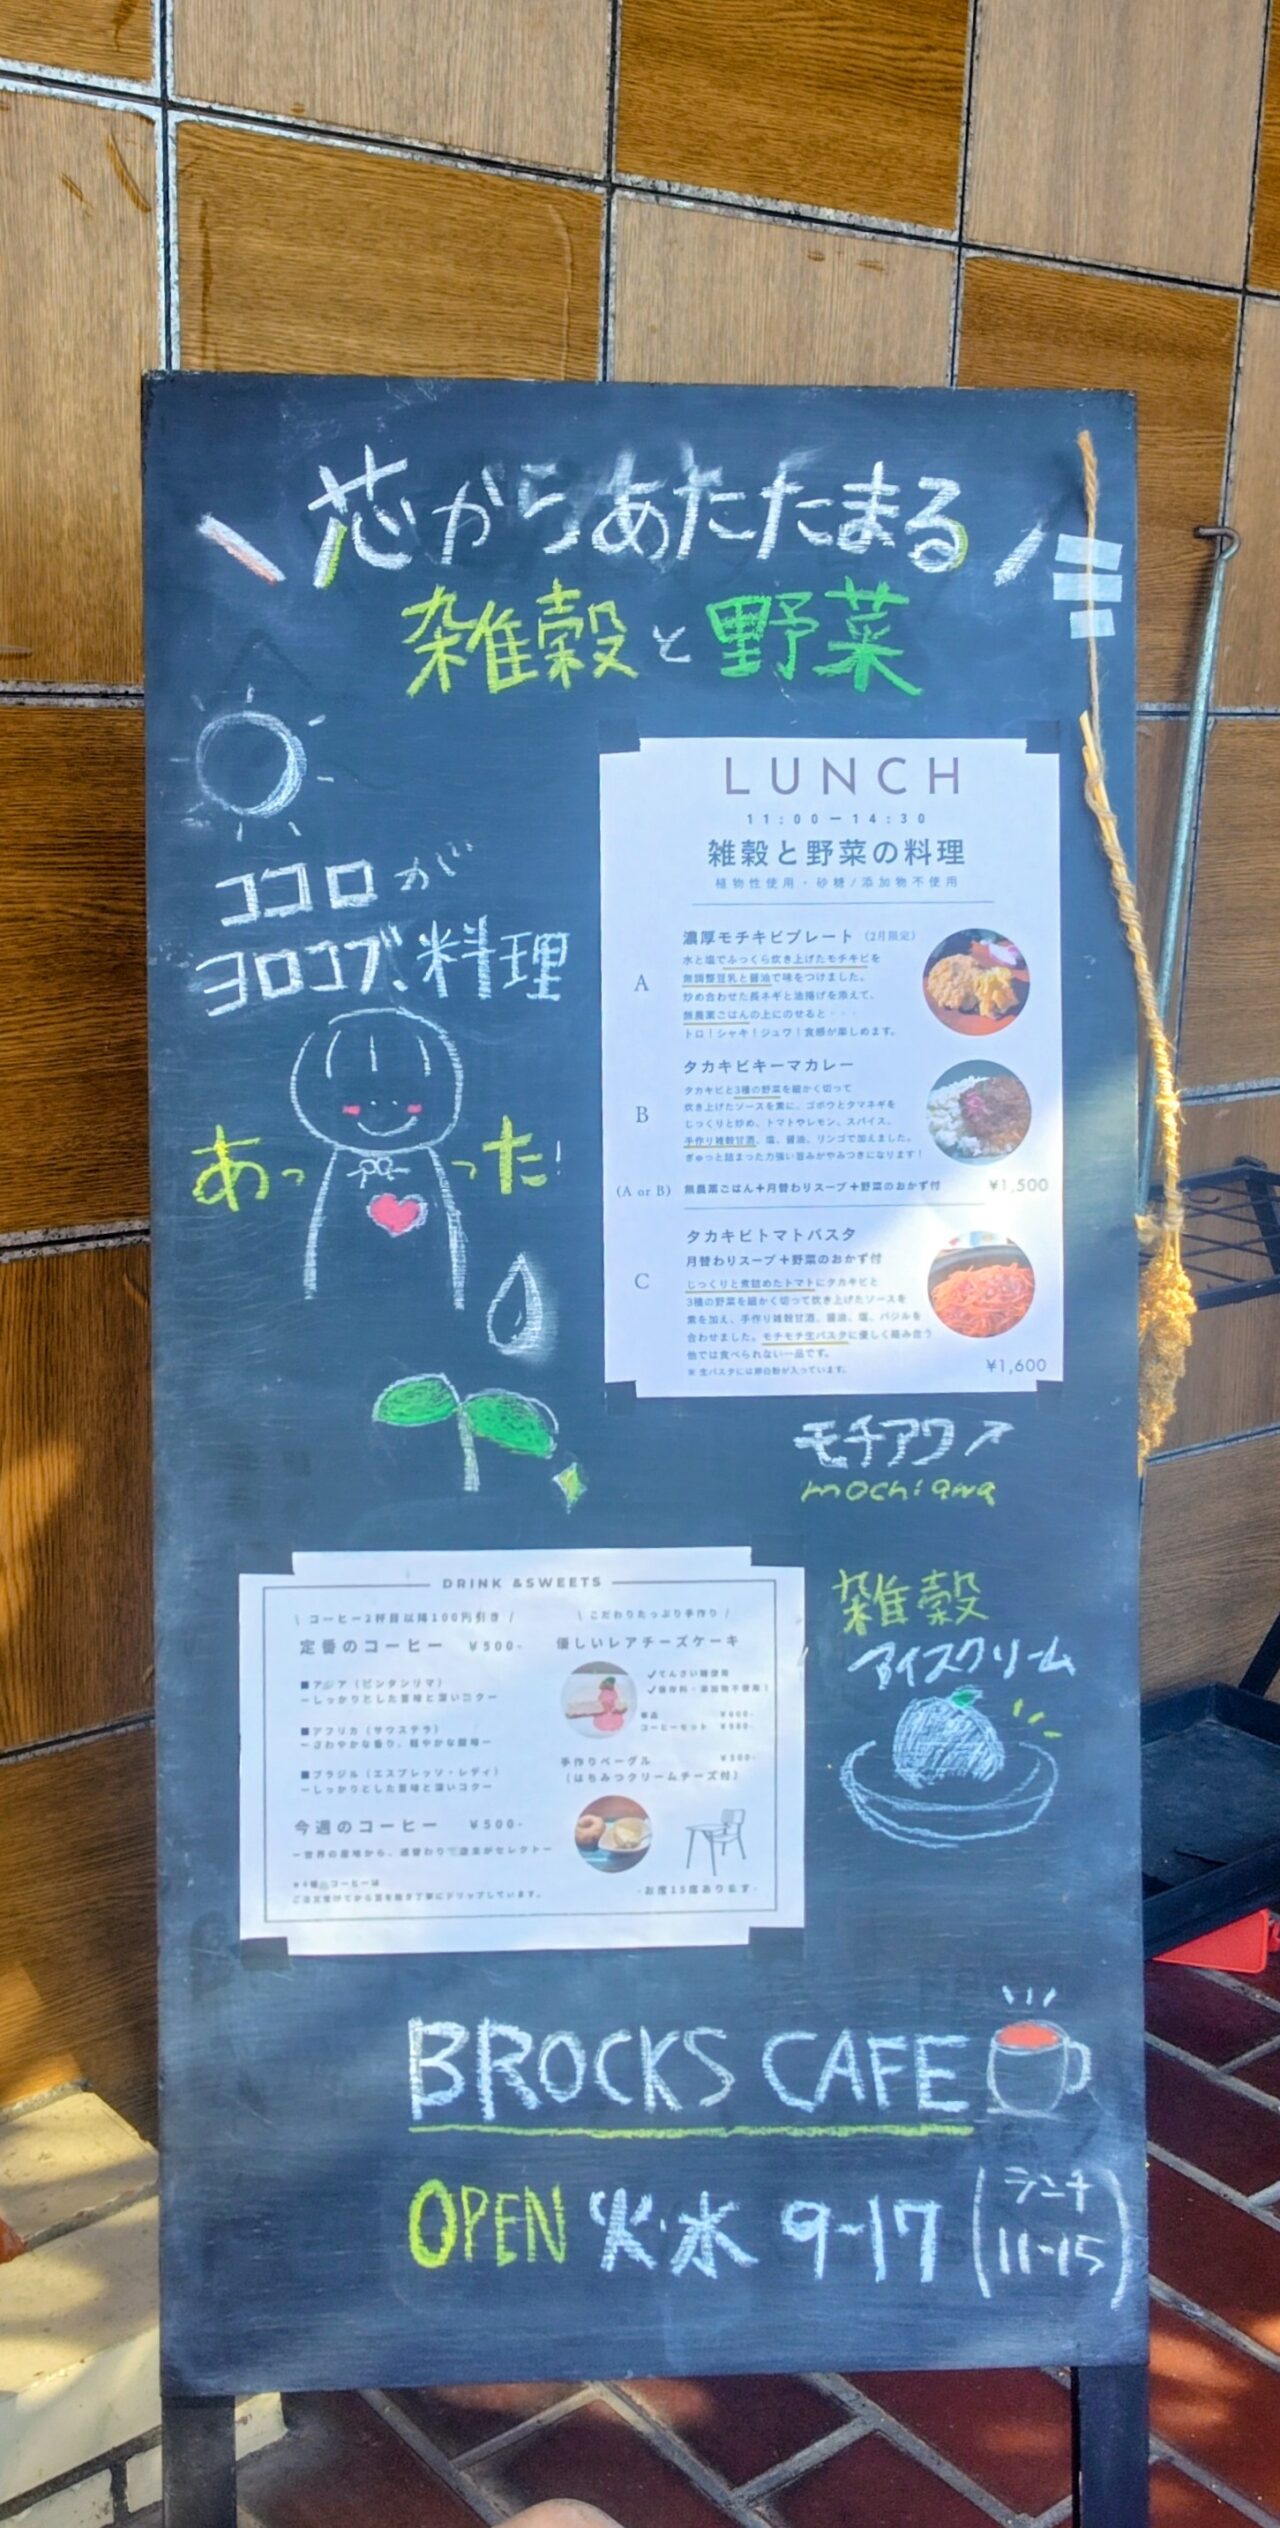 芯からあたたまる
雑穀と野菜
ココロが
ヨロコブ料理
あっった!
LUNCH
11:00ー14:30
雑穀と野菜の料理
植物性使用・砂糖/添加物不使用
A
濃厚モチキビプレート (2月限定)
水と塩でふっくら炊き上げたモチキビを
無調整豆乳と醤油で味をつけました。
炒め合わせた長ネギと油揚げを添えて、
無農薬ごはんの上にのせると・・・
トロ!シャキ!ジュワ!食感が楽しめます。
B
タカキビキーマカレー
タカキビと3種の野菜を細かく切って
炊き上げたソースを素に、ゴボウとタマネギを
じっくりと炒め、トマトやレモン、スパイス、
手作り雑穀甘酒、塩、醤油、リンゴで加えました。
ぎゅっと詰まった力強い旨みがやみつきになります!
(A or B) 無農薬ごはん+月替わりスープ+野菜のおかず付 ¥1,500
C
タカキビトマトパスタ
月替わりスープ+野菜のおかず付
じっくりと煮詰めたトマトにタカキビと
3種の野菜を細かく切って炊き上げたソースを
素を加え、手作り雑穀甘酒、醤油、塩、バジルを
合わせました。モチモチ生パスタに優しく絡み合う
他では食べられない一品です。
※生パスタには卵白粉が入っています。
¥1,600
モチアワ
mochiawa
DRINK &SWEETS
\ コーヒー2杯目以降100円引き /
定番のコーヒー ¥500-
■アジア(ビンタンリマ)
ーしっかりとした苦味と深いコクー
■アフリカ(サウステラ)
ーさわやかな香り、軽やかな酸味ー
■ブラジル(エスプレッソ・レディ)
ーしっかりとした苦味と深いコクー
今週のコーヒー ¥500-
ー世界の産地から、週替わりで店主がセレクトー
\ こだわりたっぷり手作り /
優しいレアチーズケーキ
✓てんさい糖使用
✓保存料・添加物不使用!
単品
コーヒーセット
手作りベーグル ¥500-
(はちみつクリームチーズ付)
-お席15席あります-
雑穀
アイスクリーム
BROCKS CAFE
OPEN 火・水 9-17 (ランチ 11-15)